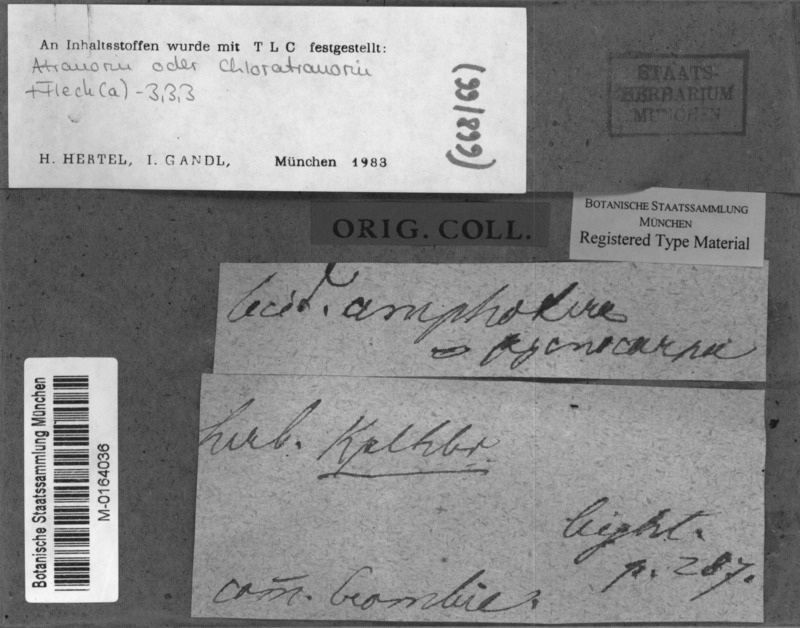 An Inhaltsstoffen wurde mit TLC festgestellt:
Atranorin oder Chloratranorin
+ Fleck (a) - 3,3,3
H. HERTEL, I. GANDL, München 1983
(668/66)
STAATS-
HERBARIUM
MÜNCHEN
ORIG. COLL.
BOTANISCHE STAATSSAMMLUNG
MÜNCHEN
Registered Type Material
Lecid. amphotera
pycnocarpa
herb. Kplhbr
Leight.
p. 287.
com̄. Crombie.
Botanische Staatssammlung München
M-0164036